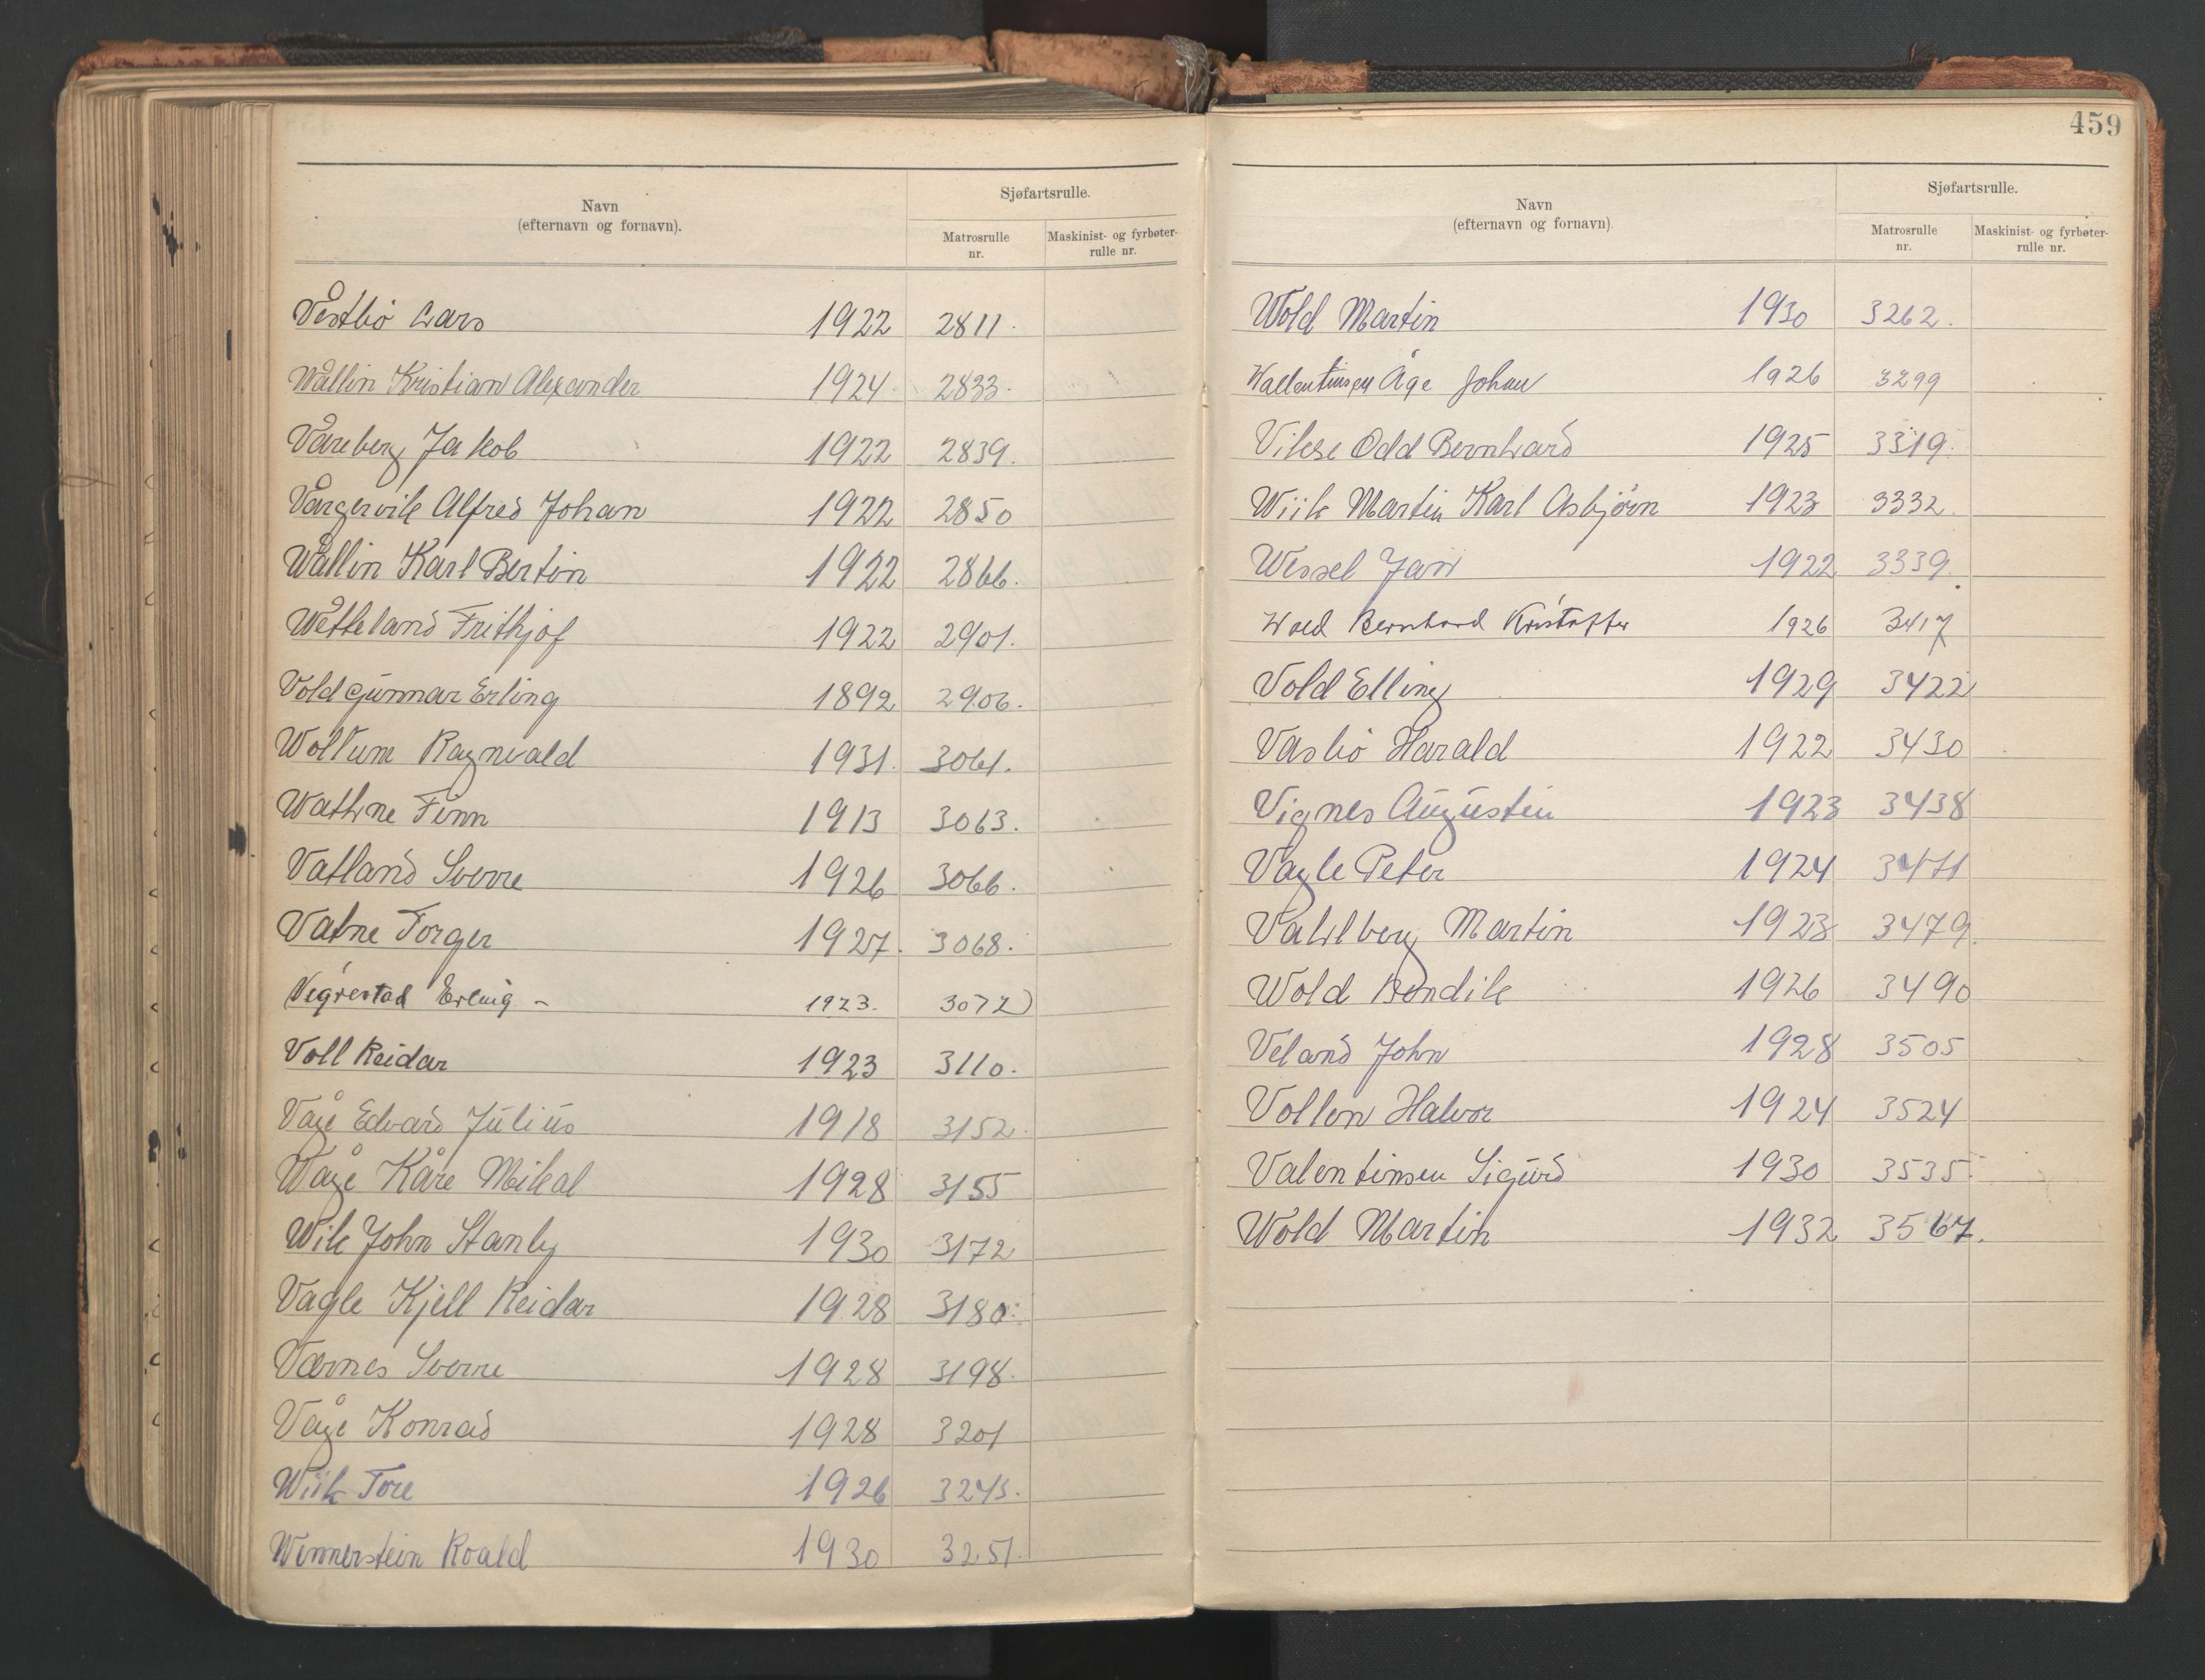 459
Navn
(efternavn og fornavn).
Sjøfartsrulle.
Matrosrulle nr.
Maskinist- og fyrbøter-rulle nr.
Vestbö Lars 1922 2811.
Wallin Kristian Alexander 1924 2833.
Vareberg Jakob 1922 2839.
Vargervik Alfred Johan 1922 2850
Wallin Karl Bertin 1922 2866.
Wetteland Frithjof 1922 2901.
Vold Gunnar Erling 1892 2906.
Wollum Ragnvald 1931. 3061.
Wathne Finn 1913 3063.
Vatland Sverre 1926 3066.
Vatne Torger 1927. 3068.
Vegrestad Erling - 1923. 3072)
Voll Reidar 1923 3110.
Våge Edvard Julius 1918 3152.
Våge Kåre Mikal 1928 3155
Wik John Stanly 1930 3172
Vagle Kjell Reidar 1928 3180.
Værnes Sverre 1928 3198.
Våge Konrad 1928 3201
Wiik Tore 1926 3245.
Winnerstein Roald 1930 3251.
Navn
(efternavn og fornavn)
Sjøfartsrulle.
Matrosrulle nr.
Maskinist- og fyrbøter-rulle nr.
Wold Martin 1930 3262.
Wallentinsen Åge Johan 1926 3299
Vikse Odd Bernhard 1925 3319.
Wiik Martin Karl Asbjörn 1923 3332.
Wessel Jan 1922 3339.
Wold Bernhard Kristoffer 1926 3417
Vold Elling 1929 3422
Vasbö Harald 1922 3430
Vignes Augustin 1923 3438
Vagle Peter 1924 3471
Vahlberg Martin 1928 3479.
Wold Bendik 1926 3490
Veland John 1928 3505
Vollen Halvor 1924 3524
Valentinsen Sigurd 1930 3535.
Wold Martin 1932 3567.